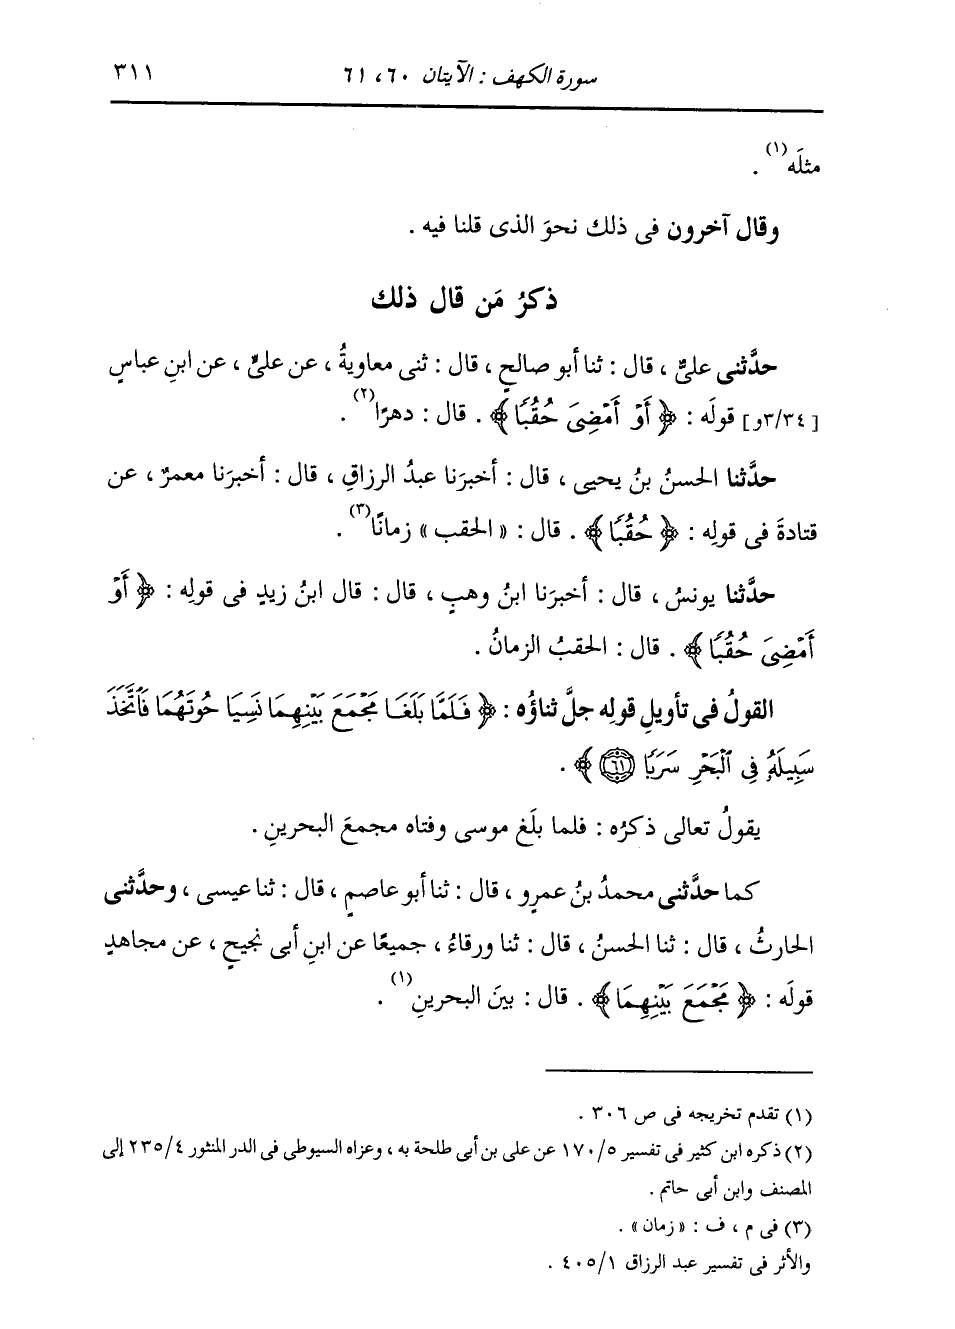 سورة الكهف : الآيتان ٦٠ ، ٦١ ٣١١
مثلَه(١) .
وقال آخرون فى ذلك نحوَ الذى قلنا فيه .
ذكرُ مَن قال ذلك
حدَّثنى علىٌّ ، قال : ثنا أبو صالحٍ ، قال : ثنى معاويةُ ، عن علىٍّ ، عن ابنِ عباسٍ
[٣/٣٤و] قولَه : ﴿ أَوْ أَمْضِىَ حُقُبًا ﴾ . قال : دهرًا(٢) .
حدَّثنا الحسنُ بنُ يحيى ، قال : أخبرَنا عبدُ الرزاقِ ، قال : أخبرَنا معمرٌ ، عن
قتادةَ فى قولِه : ﴿ حُقُبًا ﴾ . قال : « الحقب » زمانًا(٣) .
حدَّثنا يونسُ ، قال : أخبرَنا ابنُ وهبٍ ، قال : قال ابنُ زيدٍ فى قولِه : ﴿ أَوْ
أَمْضِىَ حُقُبًا ﴾ . قال : الحقبُ الزمانُ .
القولُ فى تأويلِ قولِه جلَّ ثناؤُه : ﴿ فَلَمَّا بَلَغَا مَجْمَعَ بَيْنِهِمَا نَسِيَا حُوتَهُمَا فَٱتَّخَذَ
سَبِيلَهُۥ فِى ٱلْبَحْرِ سَرَبًا ٦١ ﴾ .
يقولُ تعالى ذكرُه : فلما بلَغ موسى وفتاه مجمعَ البحرينِ .
كما حدَّثنى محمدُ بنُ عمرٍو ، قال : ثنا أبو عاصمٍ ، قال : ثنا عيسى ، وحدَّثنى
الحارثُ ، قال : ثنا الحسنُ ، قال : ثنا ورقاءُ ، جميعًا عن ابنِ أبى نجيحٍ ، عن مجاهدٍ
قولَه : ﴿ مَجْمَعَ بَيْنِهِمَا ﴾ . قال : بينَ البحرينِ(١) .
(١) تقدم تخريجه فى ص ٣٠٦ .
(٢) ذكره ابن كثير فى تفسير ١٧٠/٥ عن على بن أبى طلحة به ، وعزاه السيوطى فى الدر المنثور ٢٣٥/٤ إلى
المصنف وابن أبى حاتم .
(٣) فى م ، ف : « زمان » .
والأثر فى تفسير عبد الرزاق ٤٠٥/١ .